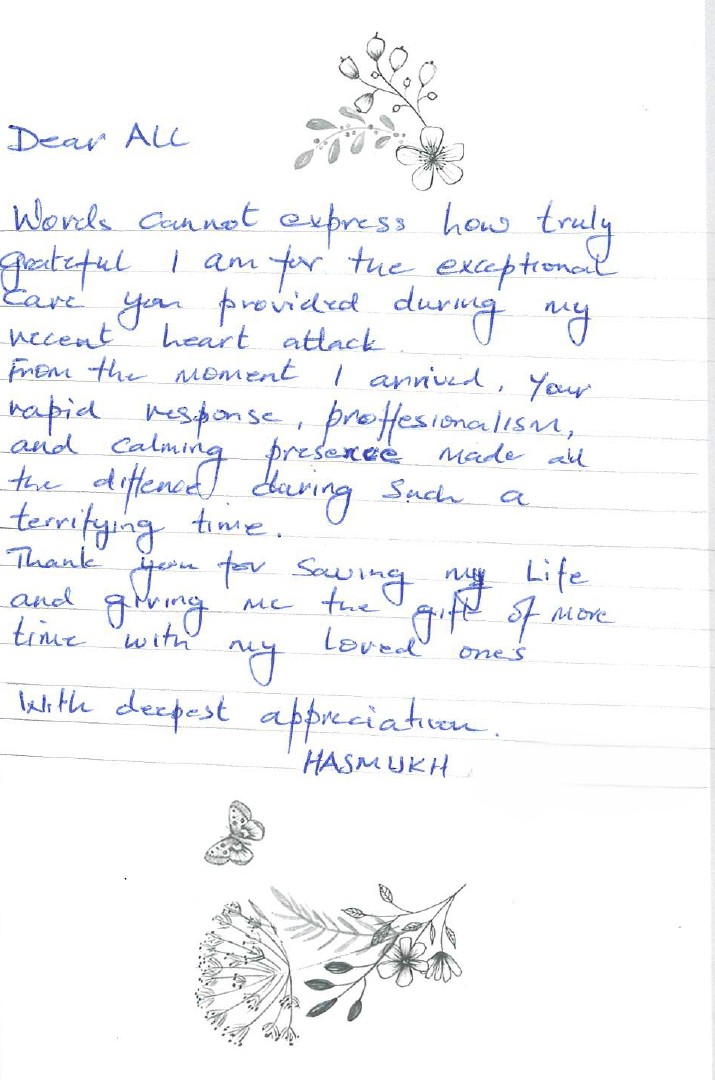 Dear All
Words cannot express how truly
grateful I am for the exceptional
care you provided during my
recent heart attack.
From the moment I arrived, Your
rapid response, proffesionalism,
and calming presence made all
the diffence during such a
terrifying time.
Thank you for saving my Life
and giving me the gift of more
time with my loved ones
With deepest appreciation.
HASMUKH